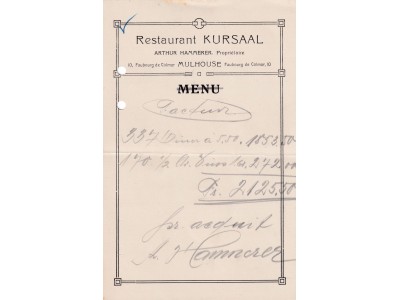 Restaurant KURSAAL
ARTHUR HAMMERER, Propriétaire
10, Faubourg de Colmar MULHOUSE Faubourg de Colmar, 10
MENU
337 Diners à 5.50 1853.50
170 1/2 Bt. 272.00
Fr. 2125.50
pr. acquit
A. Hammerer